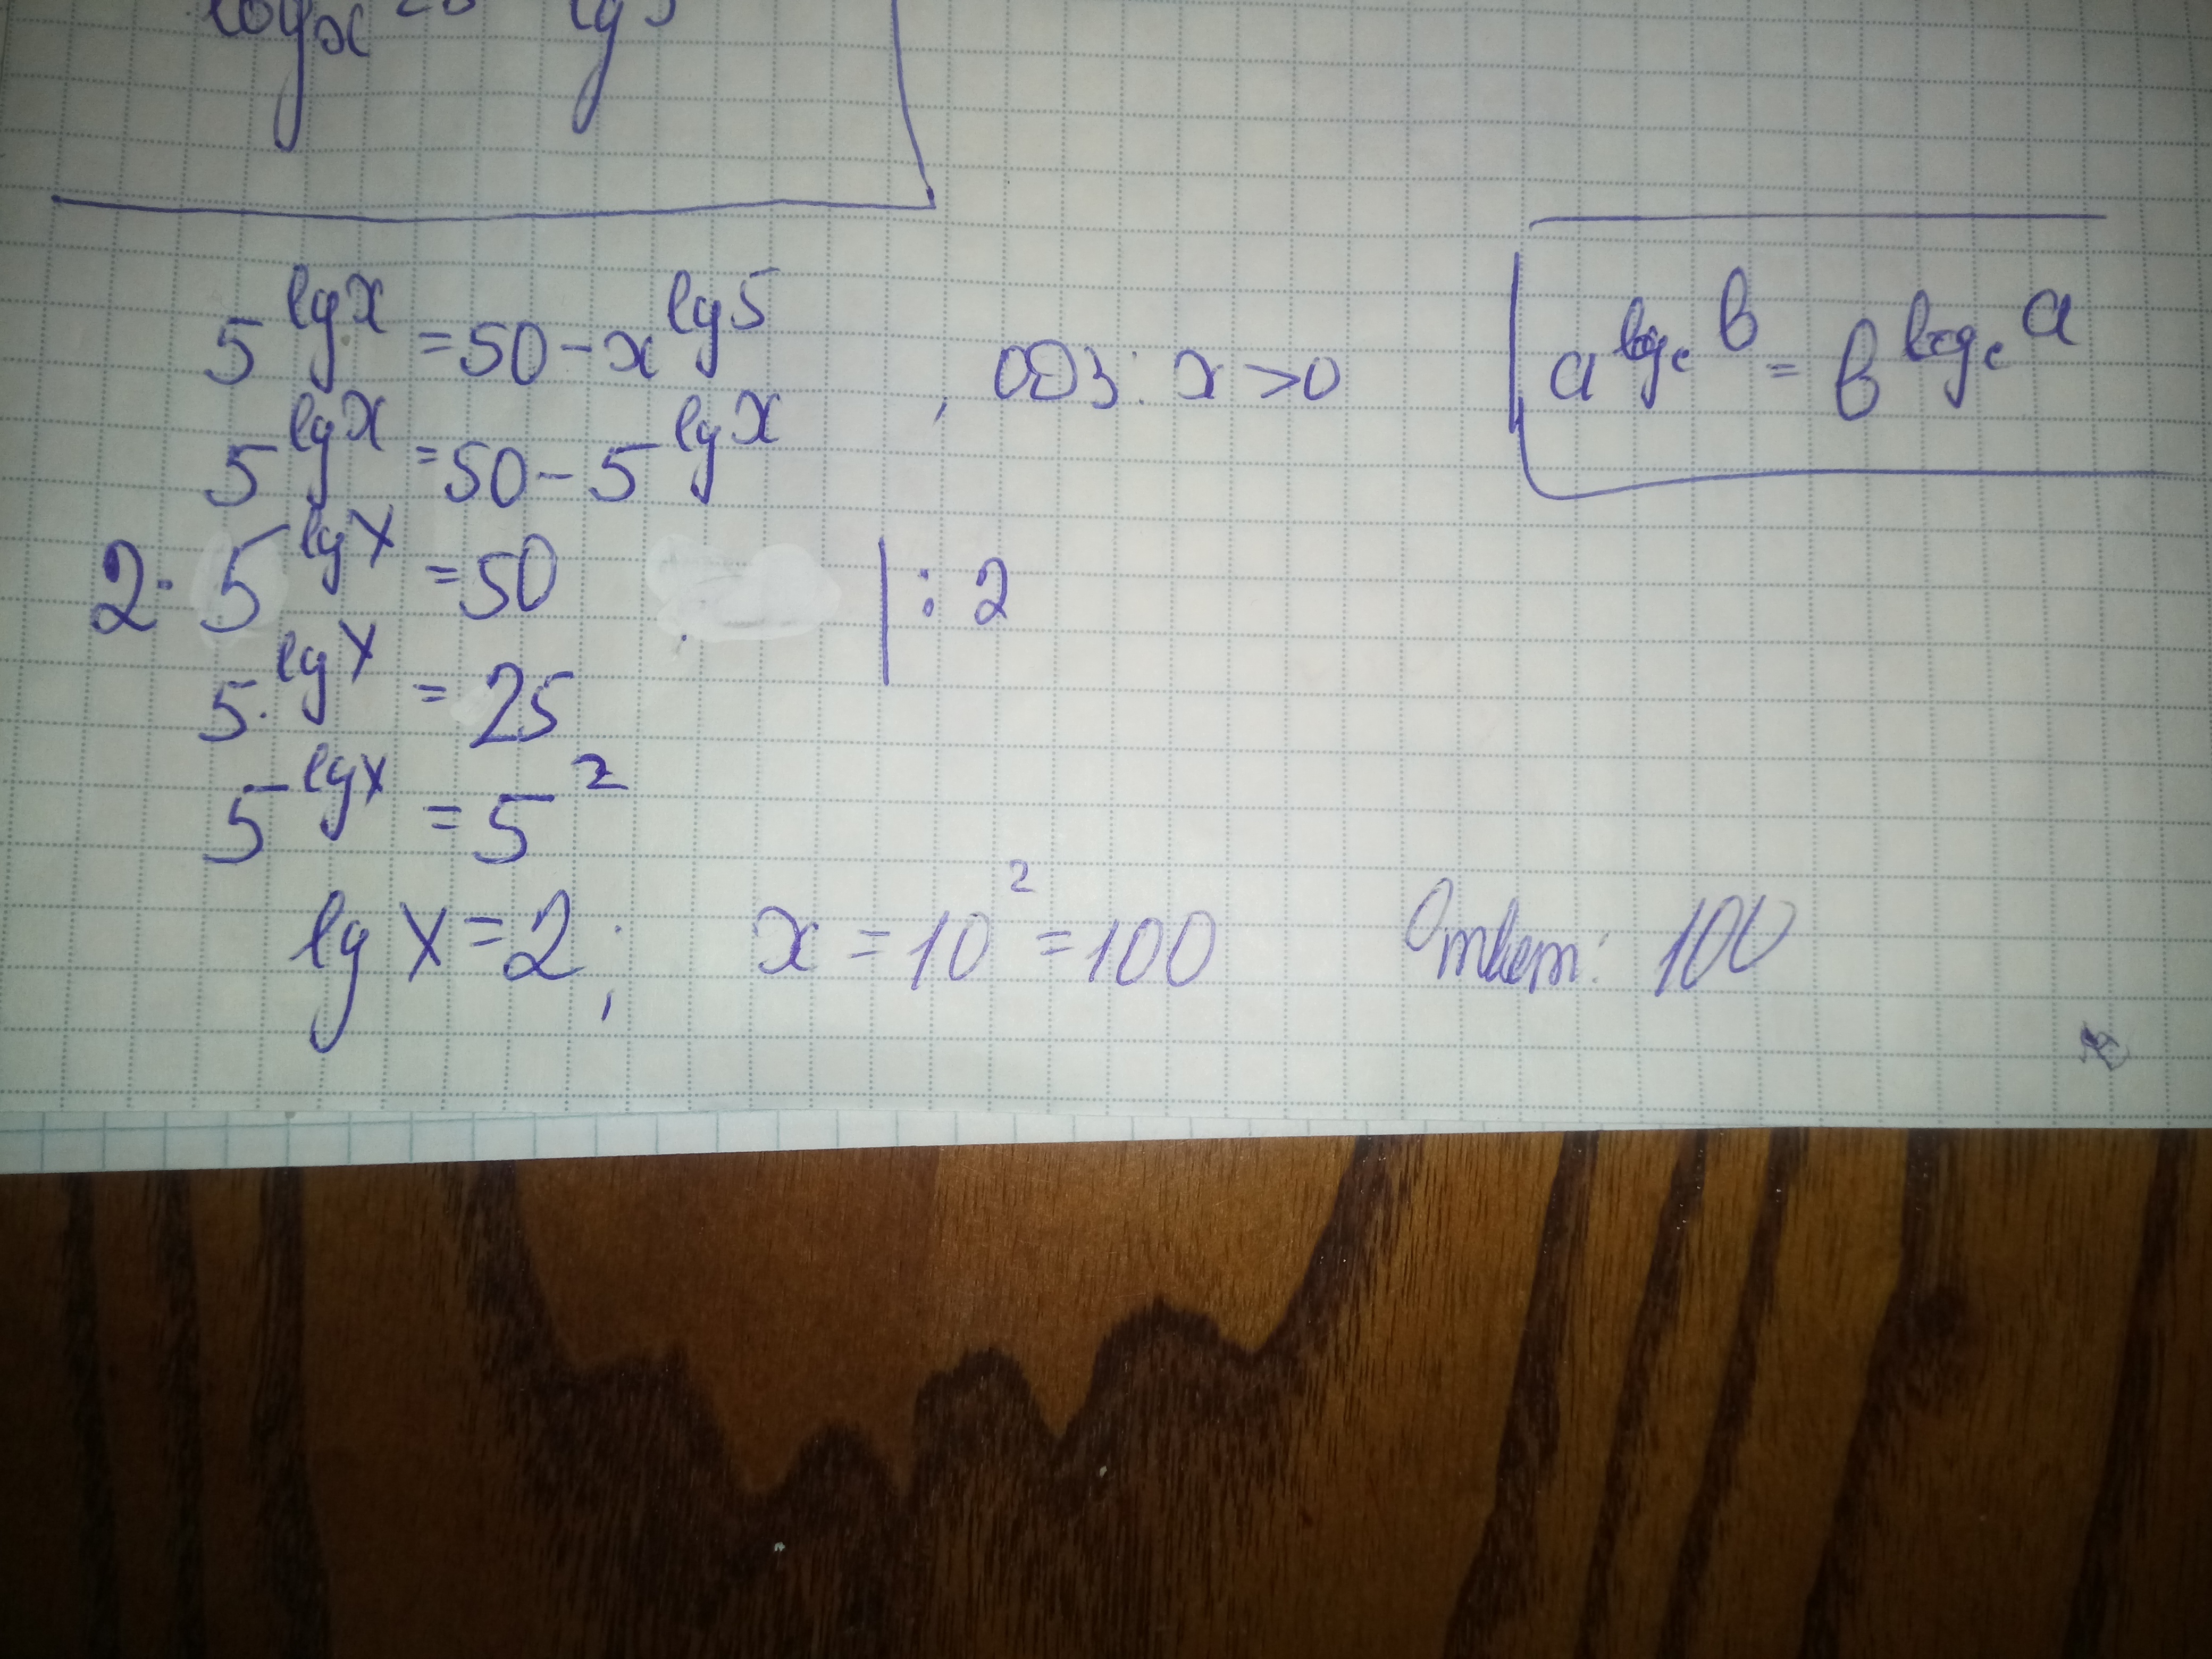 5^{lg x} = 50 - x^{lg 5} , ОДЗ: x > 0
a^{log_c b} = b^{log_c a}
5^{lg x} = 50 - 5^{lg x}
2 · 5^{lg x} = 50 | : 2
5^{lg x} = 25
5^{lg x} = 5^2
lg x = 2 ; x = 10^2 = 100 Ответ: 100